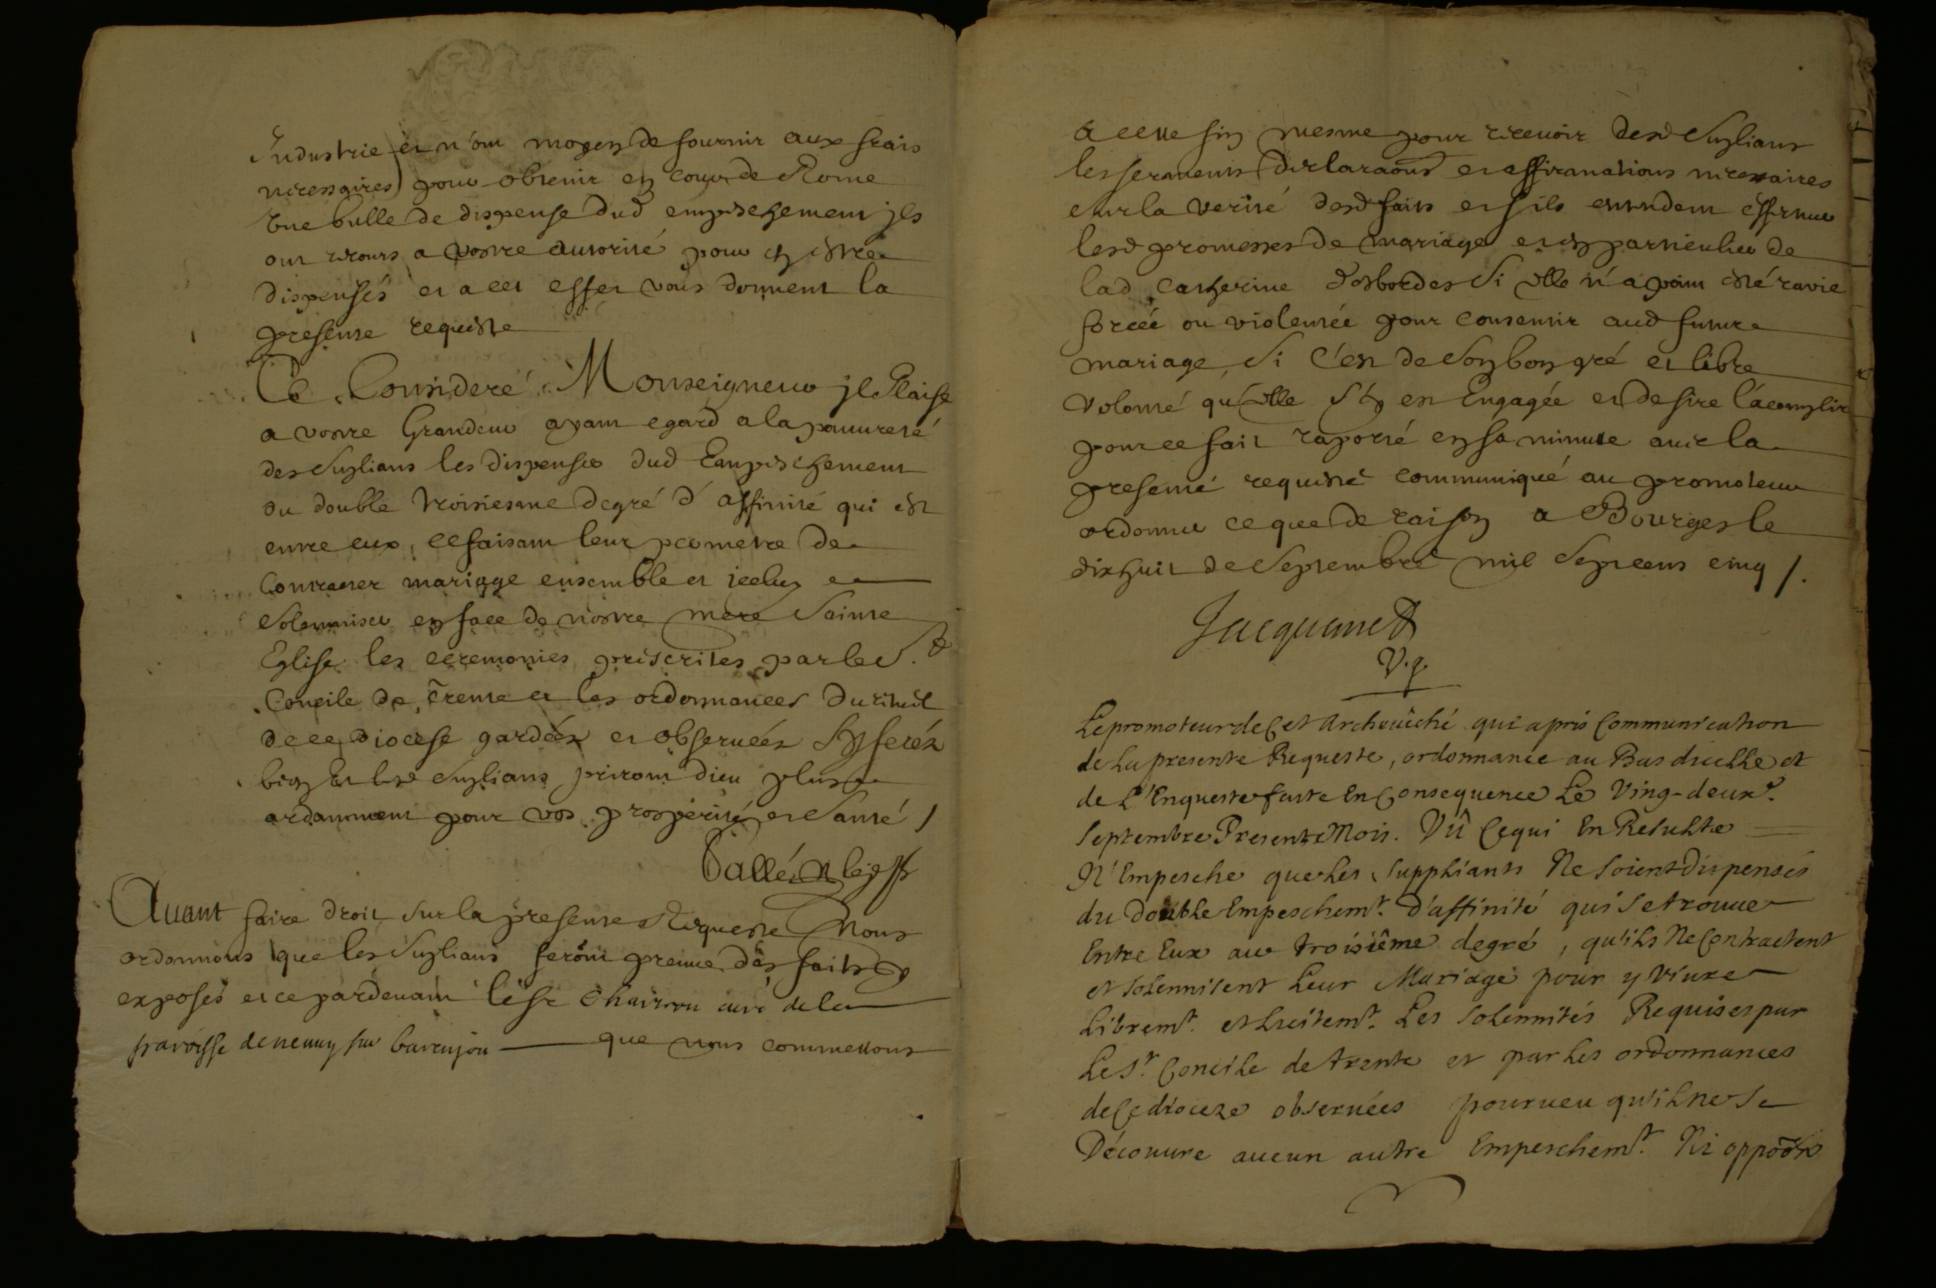 Industrie et n'ont moyen de fournir aux frais
necessaires pour obtenir en cour de Rome
une bulle de dispense dud empeschement ils
ont recours a vostre autorité pour en estre
dispensés et a cet effet vous donnent la
presente requeste
Ce Consideré Monseigneur il Plaise
a vostre Grandeur ayant egard a la pauvreté
des suplians les dispenser dud Empeschement
du double troisiesme degré d'affinité qui est
entre eux, ce faisant leur permetre de
Contracter mariage ensemble et iceluy
Solemniser en face de nostre mere Sainte
Eglise les ceremonies prescrites par le St
Concile de Trente et les ordonnances du rituel
de ce diocese gardées et observées Sy ferez
bien Et lesd suplians priront dieu plus
ardamment pour vos prosperité et Santé /
Avant faire droit Sur la presente Requeste Nous
ordonnons que les Suplians feront preuve des faits y
exposés et ce pardevant le Sr curé de la
parroisse de neuvy sur baranjon que nous commettons
a cette fin mesme pour recevoir desd Suplians
les serments declaraons et affirmations necessaires
sur la verité desd faits et s'ils entendent effectuer
lesd promesses de mariage et en particulier de
lad Catherine Desbordes Si elle n'a point esté ravie
forcée ou violentée pour consentir aud futur
mariage Si C'est de Son bon gré et libre
Volonté qu'elle S'y est Engagée et desire l'acomplir
pour ce fait raporté en sa minute avec la
presente requeste communiqué au promoteur
ordonner ce que de raison a Bourges le
dixhuit de Septembre mil Sept cens cinq /.
Jacquemet
V.g.
Le promoteur de Cet Archevêché qui a pris Communication
de La presente Requeste, ordonnance au Bas d'icelle et
de L'Enqueste faite En Consequence Le Ving-deuxe
Septembre Present Mois. Vû Ce qui En Resulte
N'Empesche que Les Suppliants Ne soient dispensés
du double Empeschemt. d'affinité qui Se trouve
Entre Eux au troisiême degré, qu'ils Ne Contractent
et Solennisent Leur Mariage pour y Vivre
Libremt. et Licitemt. Les Solennités Requises par
Le St. Concile de trente et par Les ordonnances
de Ce dioceze observées pourveu qu'il ne Se
Découvre aucun autre Empeschemt. Ni oppoon